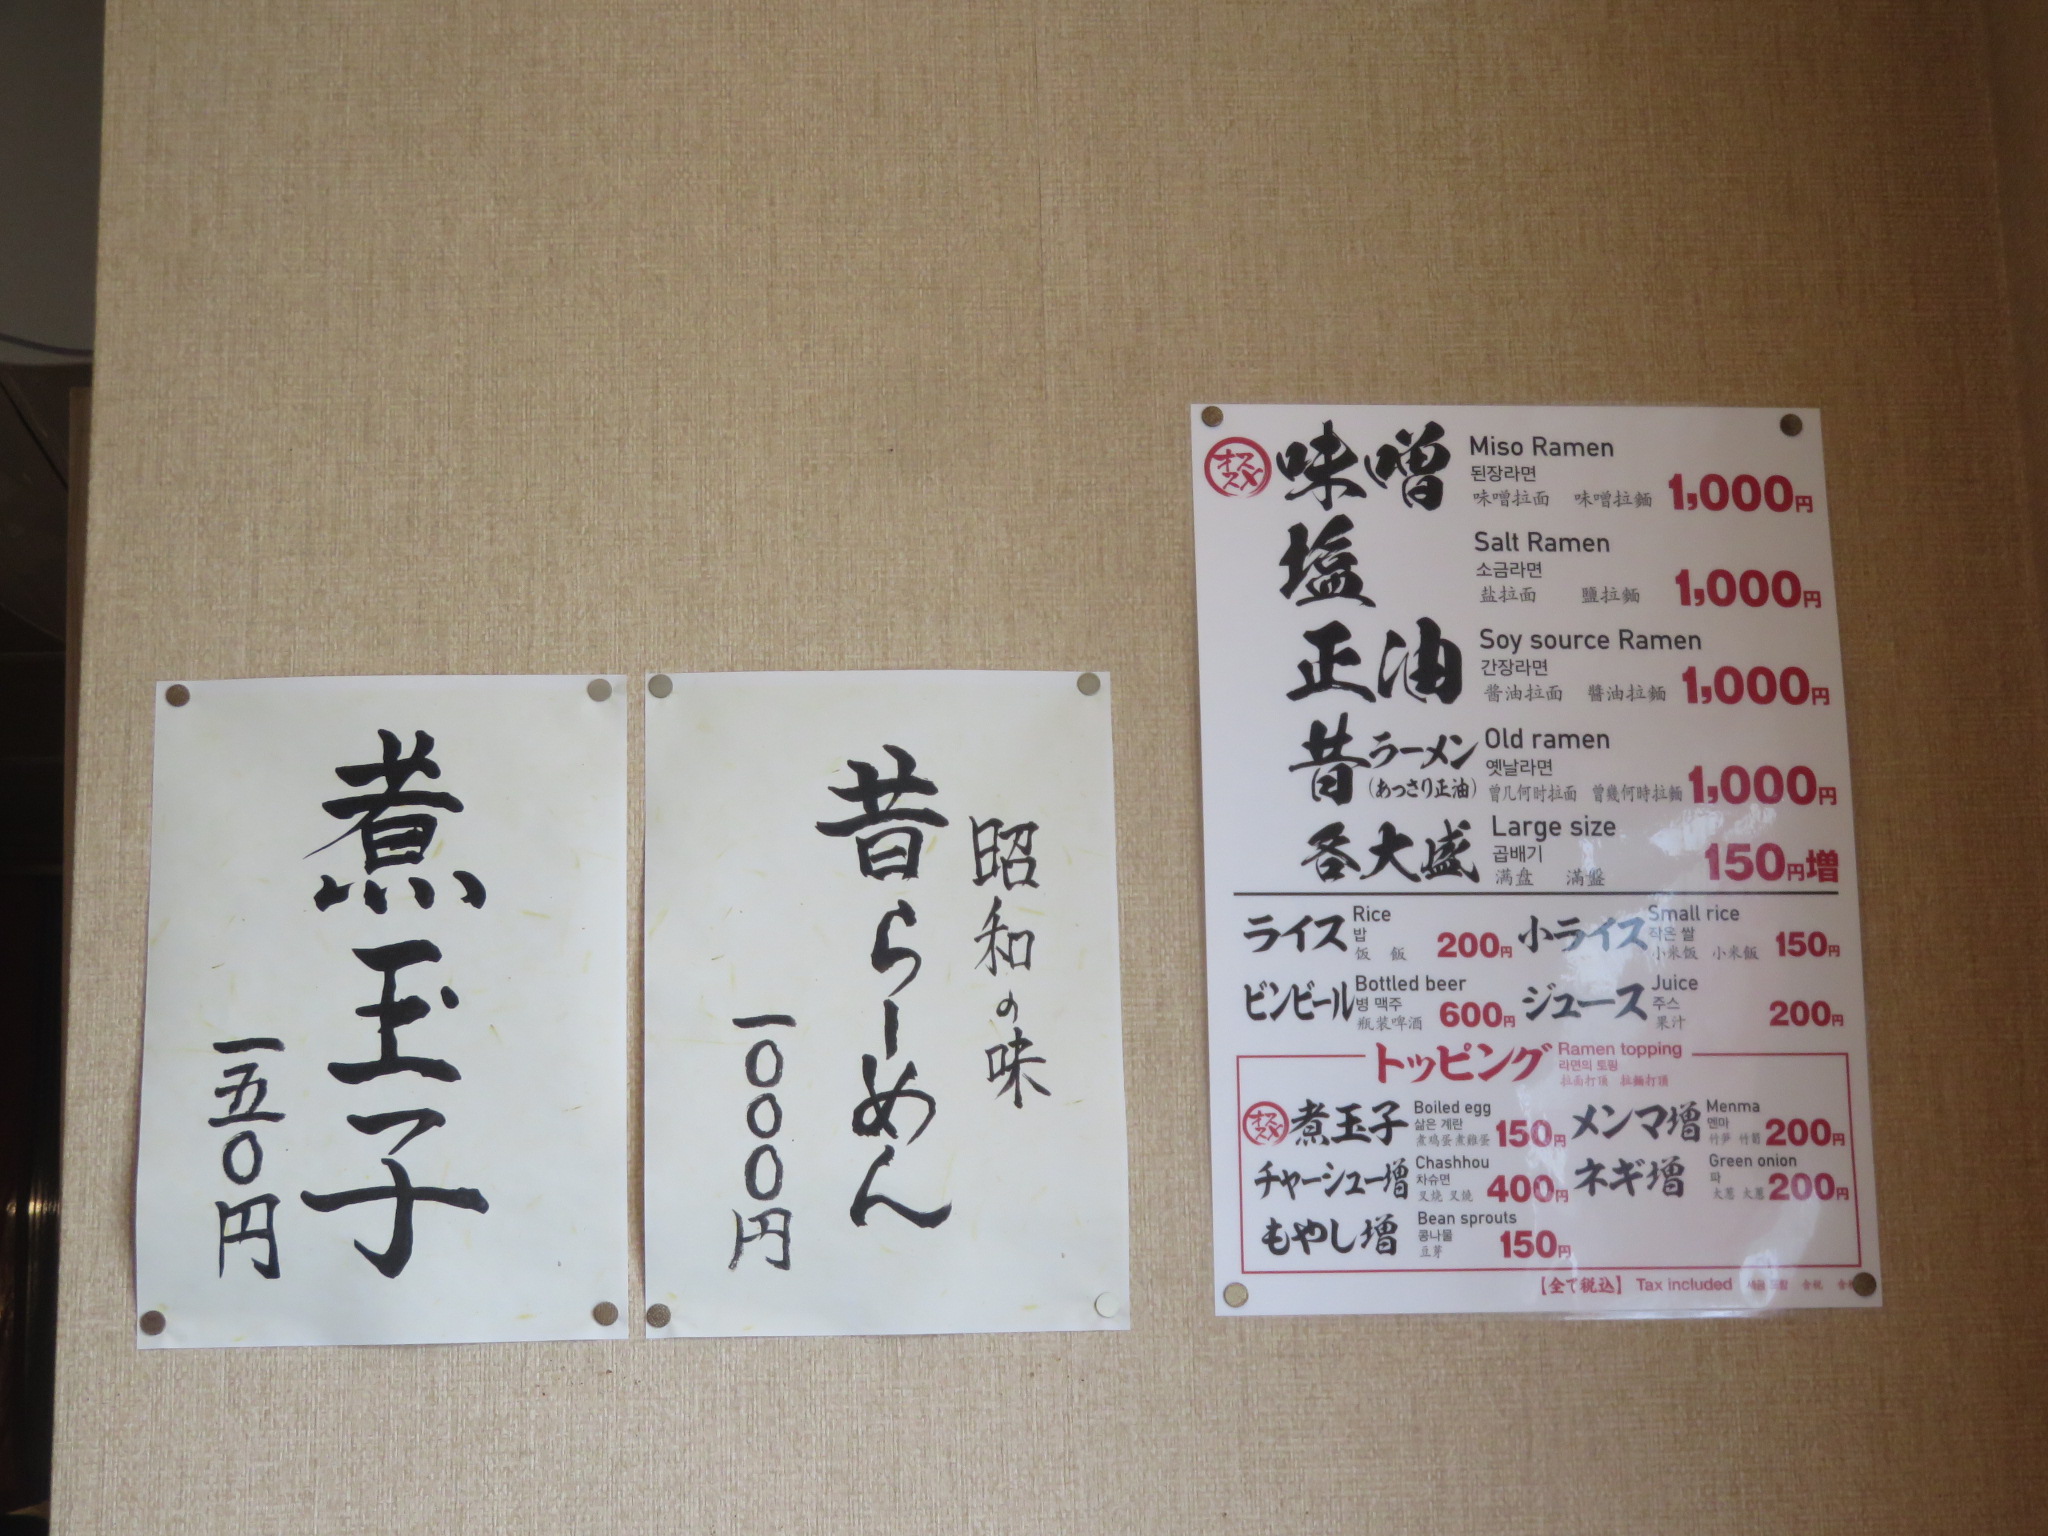 煮玉子
一五〇円
昭和の味
昔らーめん
一〇〇〇円
オススメ
味噌
Miso Ramen
된장라면
味噌拉面 味噌拉麵
1,000円
塩
Salt Ramen
소금라면
盐拉面 鹽拉麵
1,000円
正油
Soy source Ramen
간장라면
酱油拉面 醬油拉麵
1,000円
昔ラーメン
(あっさり正油)
Old ramen
옛날라면
曾几何时拉面 曾幾何時拉麵
1,000円
各大盛
Large size
곱배기
满盘 滿盤
150円増
ライス
Rice
밥
饭 飯
200円
小ライス
Small rice
작은 쌀
小米饭 小米飯
150円
ビンビール
Bottled beer
병 맥주
瓶装啤酒
600円
ジュース
Juice
주스
果汁
200円
トッピング
Ramen topping
라면의 토핑
拉面打顶 拉麵打頂
オススメ
煮玉子
Boiled egg
삶은 계란
煮鸡蛋 煮雞蛋
150円
メンマ増
Menma
멘마
竹笋 竹筍
200円
チャーシュー増
Chashhou
차슈면
叉烧 叉燒
400円
ネギ増
Green onion
파
大葱 大蔥
200円
もやし増
Bean sprouts
콩나물
豆芽
150円
【全て税込】 Tax included